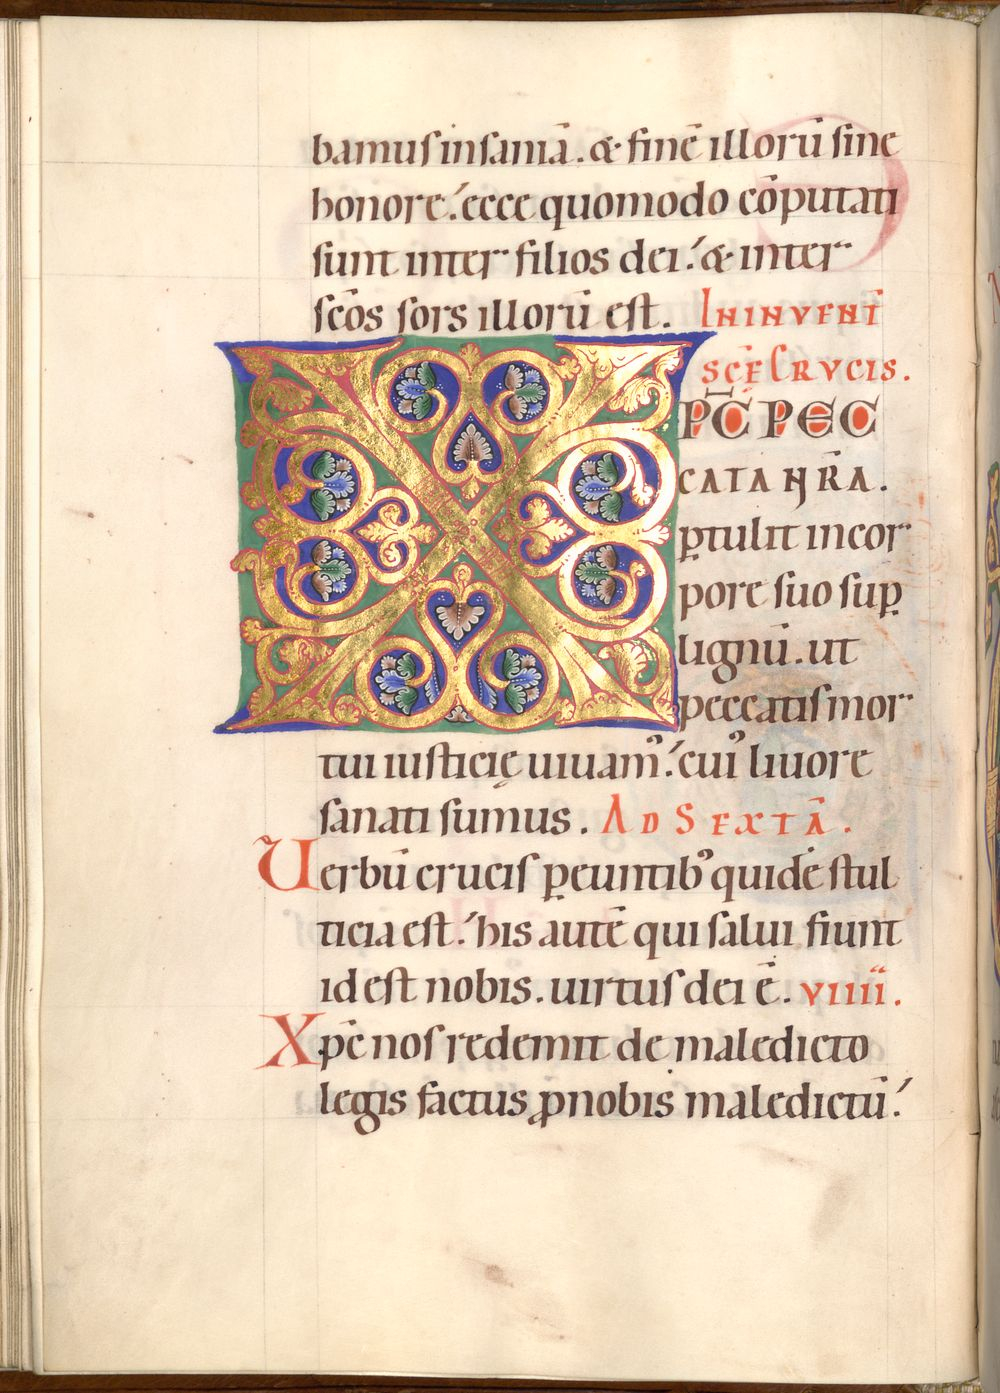 bamus insaniā. & finē illorū sine
honore. ecce quomodo cōputati
sunt inter filios dei. & inter
sc̄os sors illorū est. IN INVENT̄
SC̄E CRVCIS.
X PC̄ PEC
CATA NR̄A.
ꝑtulit in cor
pore suo suꝑ
lignū. ut
peccatis mor
tui iusticię uiuam᾿. cui᾿ liuore
sanati sumus. AD SEXTĀ.
Uerbū crucis ꝑeuntib᾿ quidē stul
ticia est. his autē qui salui fiunt
id est nobis. uirtus dei ē. VIIII.
Xpc̄ nos redemit de maledicto
legis factus ꝓ nobis maledictū.